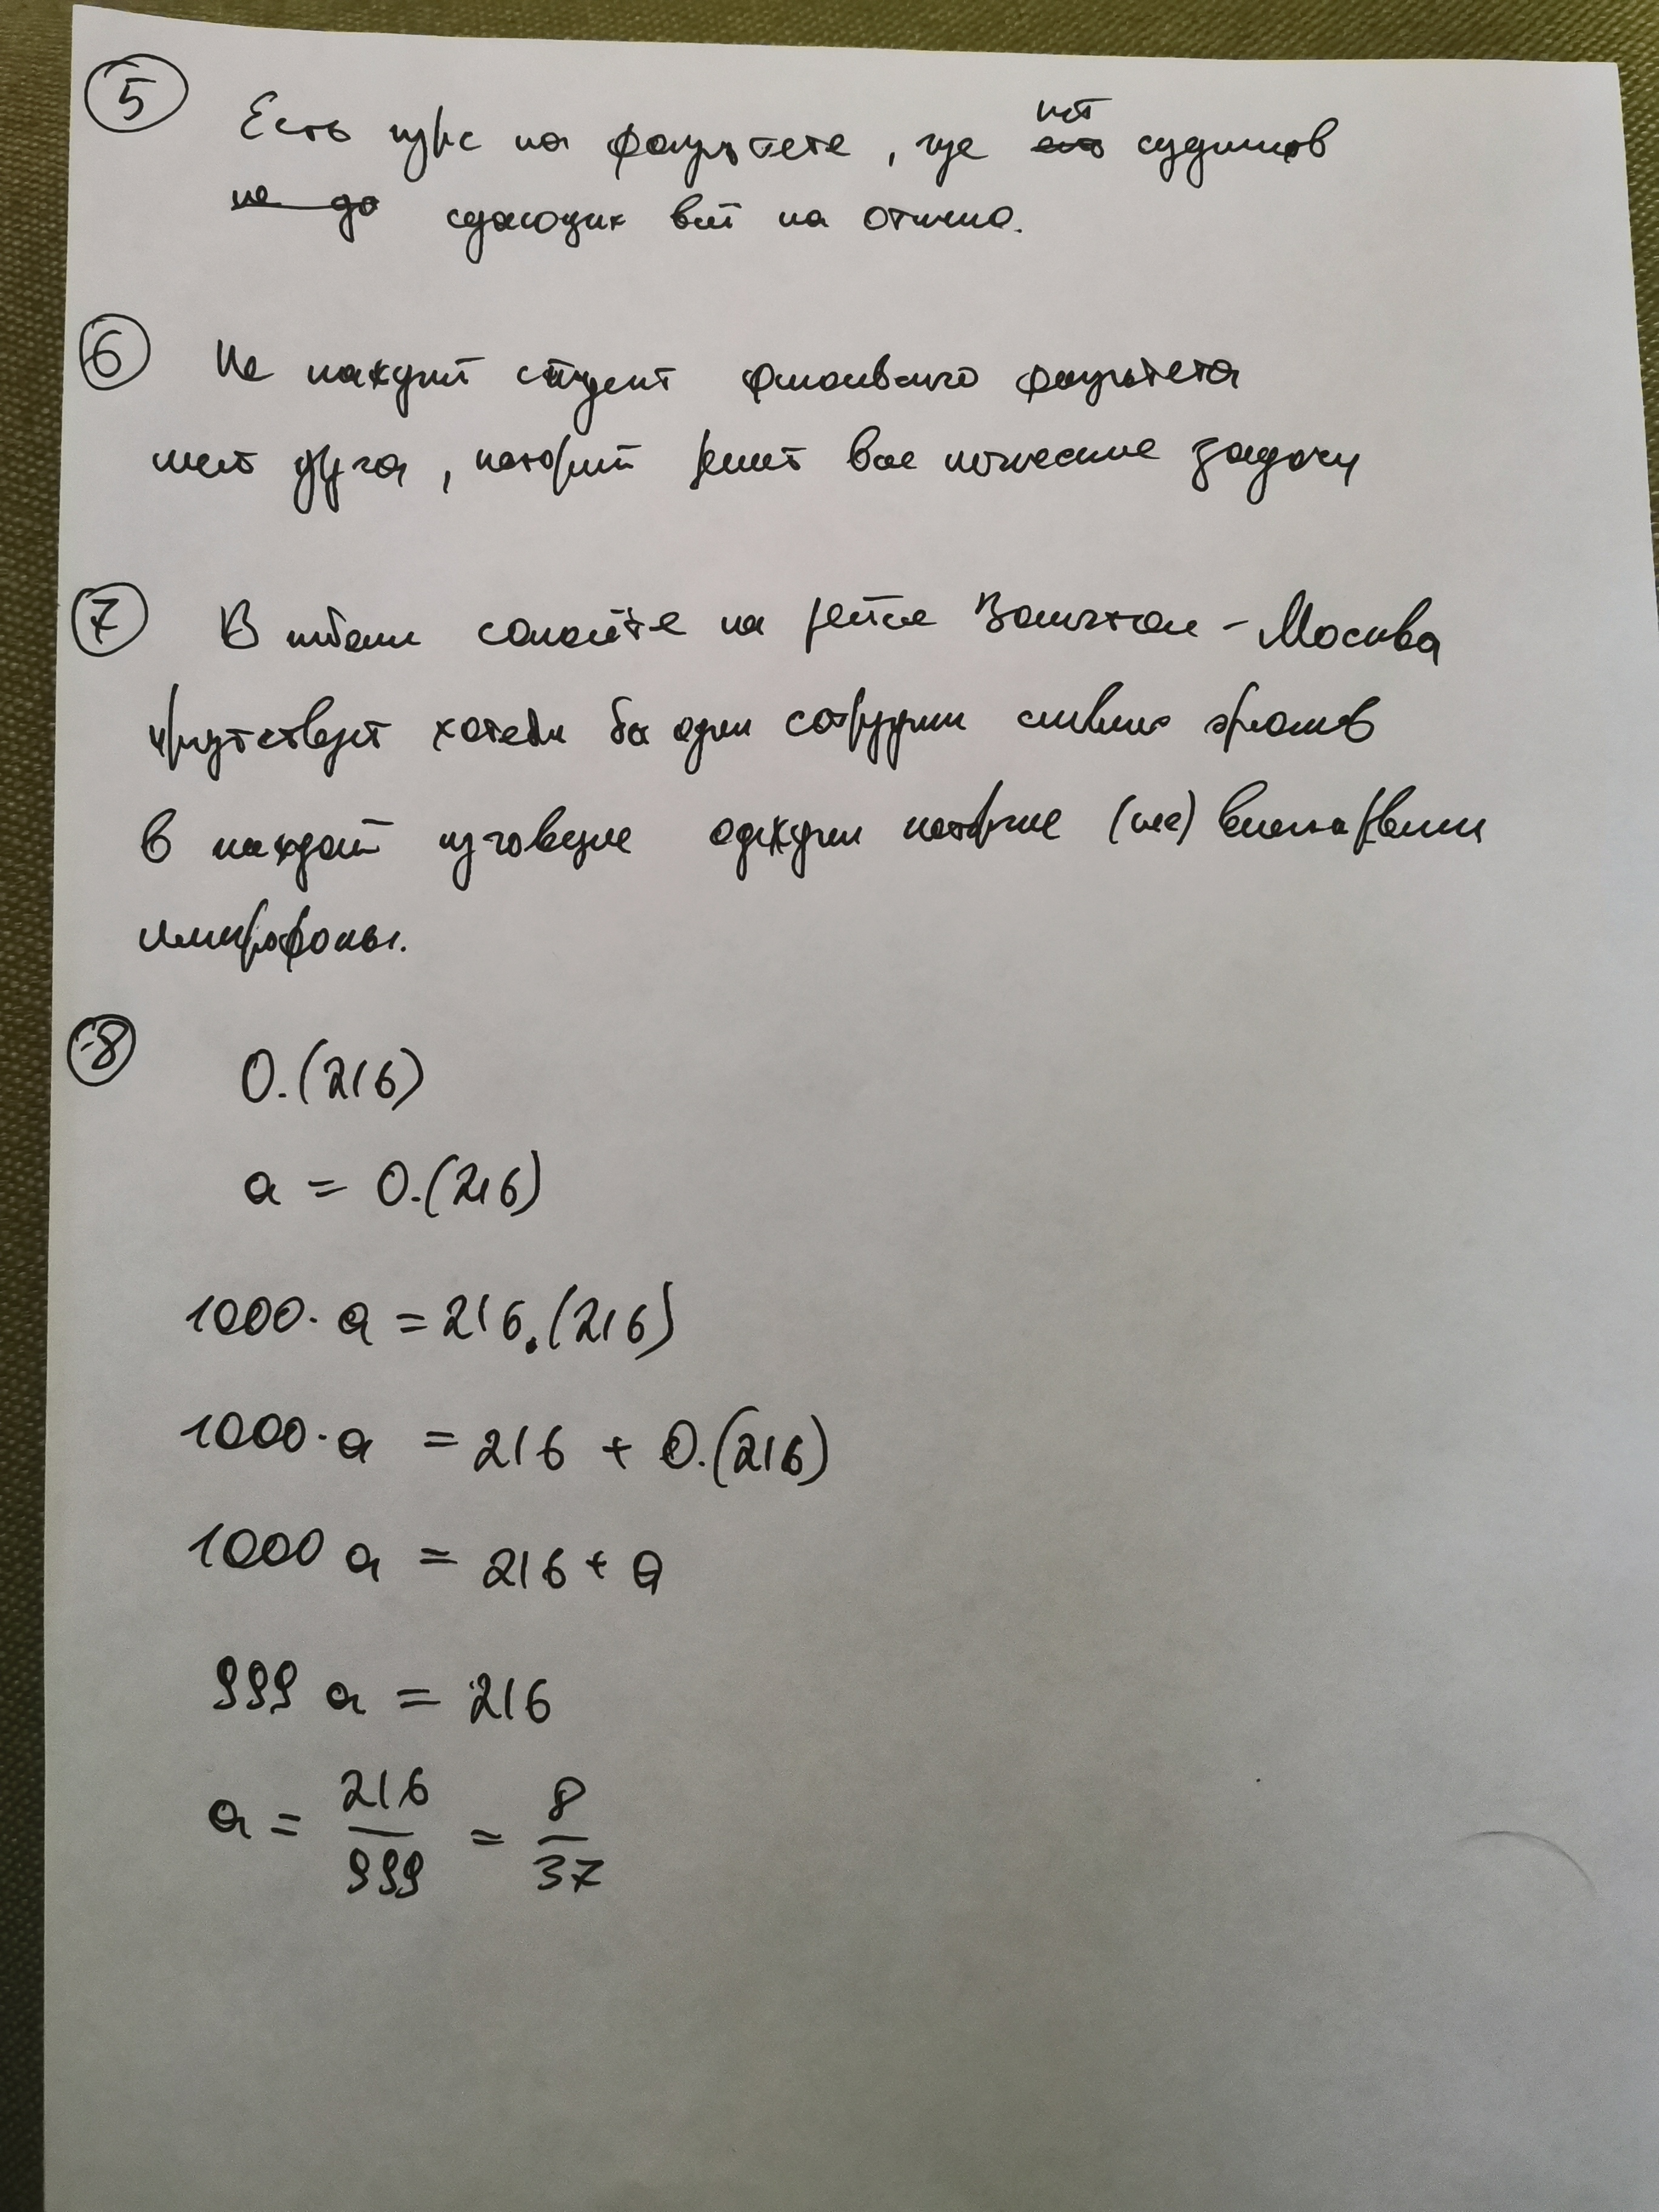 5 Есть курс на факультете, где нет студентов
сдающих всё на отлично.
6 Не каждый студент философского факультета
имеет друга, который решит все логические задачи
7 В каждом самолёте на рейсе Вашингтон - Москва
присутствует хотя бы один сотрудник
в каждой пуговице одежды которые (не) вмонтированы
микрофоны.
8
0.(216)
a = 0.(216)
1000· a = 216.(216)
1000· a = 216 + 0.(216)
1000 a = 216 + a
999 a = 216
a = 216/999 = 8/37